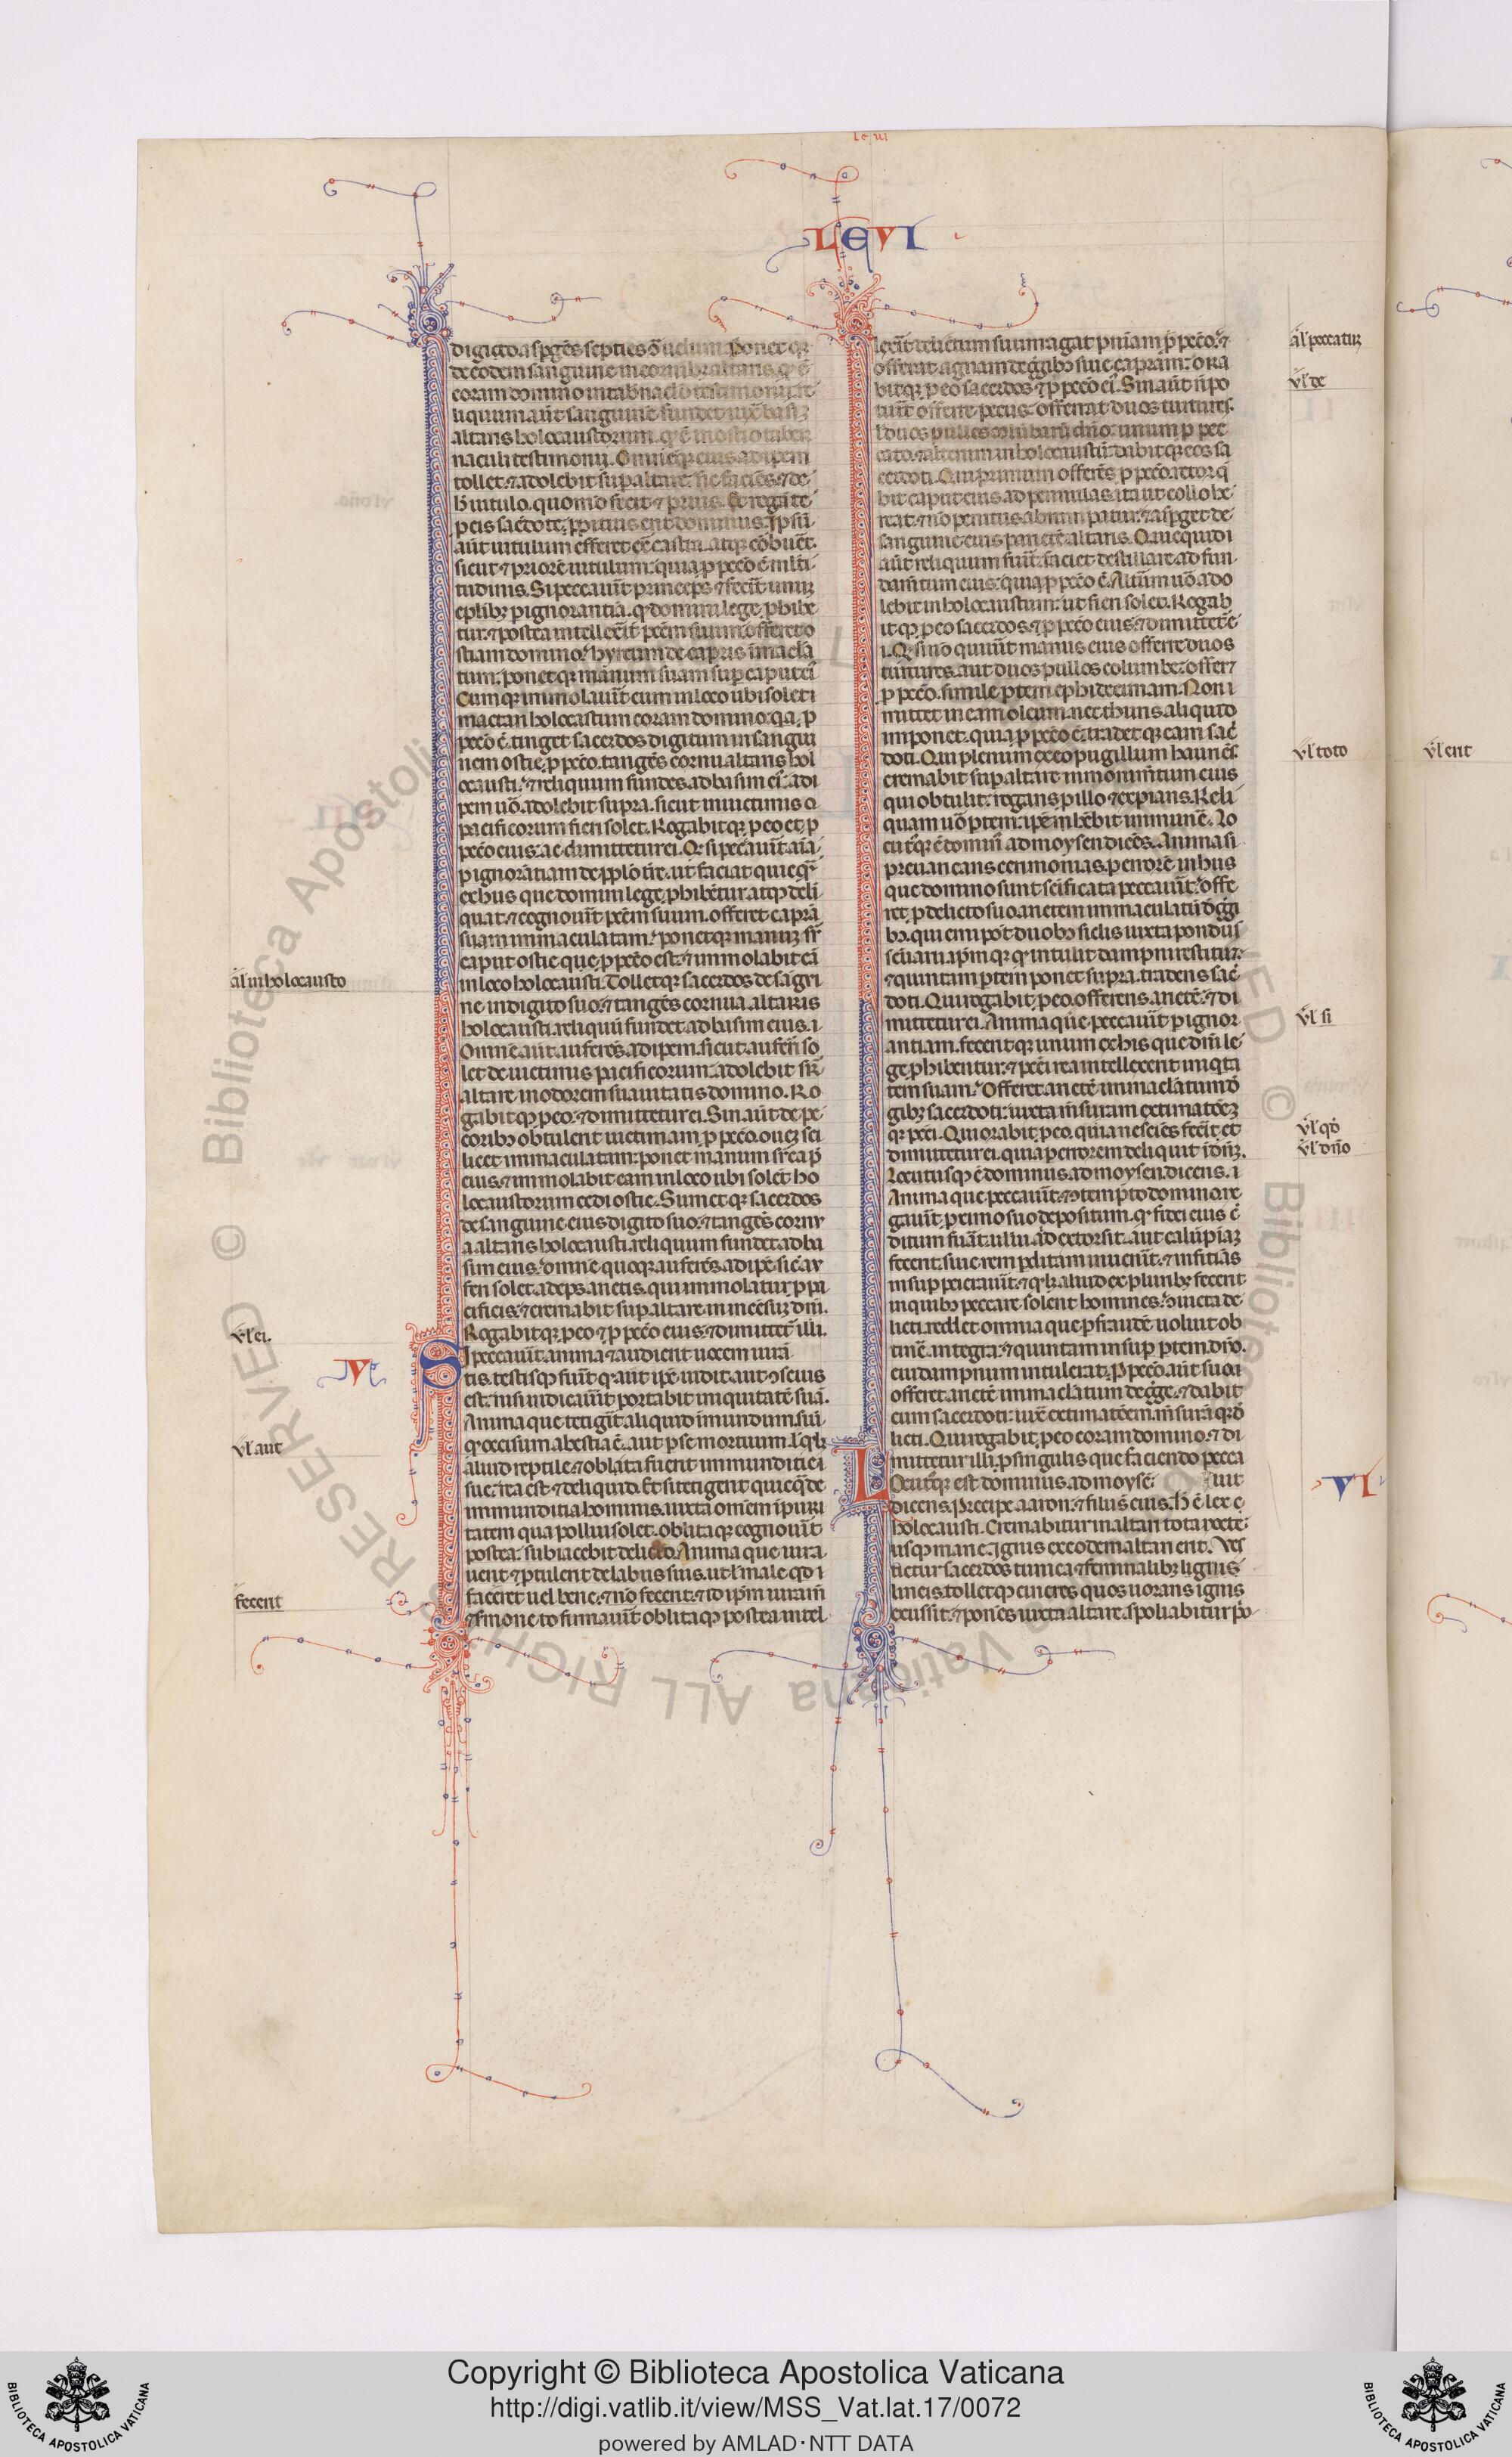 LEVI
digito aspergēs septies ɔ̄ uelum. Ponet qꝫ
de eodem sanguine in cornibꝫ altaris. qđ ē
coram domino in tabnaclo testimonij. re
liquum aūt sanguinē fundet iuxͣ basiꝫ
altaris holocaustorum. qđ ē in ostio taber
naculi testimonij. Omnēqꝫ eius adipem
tollet. ⁊ adolebit sup altare. sic faciēs ⁊ de
h̄ uitulo. quomo fecit ⁊ prius. Et rogāte
p eis sac̄dote. ꝓpitius erit dominus. Ipsū
aūt uitulum efferet ex̄ castra. atqꝫ cōburet.
sicut ⁊ priorē uitulum: quia p pccō ē ml̄ti
tudinis. Si peccauīt princeps. ⁊ fecīt unuꝫ
e plibꝫ p ignorantiā. qđ domini lege phibe
tur. ⁊ postea intellexīt pccm suum: offeret o
stiam domino: hyrcum de capris īmaclā
tum. ponet qꝫ manum suam sup caput eī
Cum qꝫ immolauīt eum in loco ubi solet i
mactari holocastum coram domino. qa p
pccō ē. tinget sacerdos digitum in sangui
nem ostie p pccō. tangēs cornu altaris hol
ocausti. ⁊ reliquum fundes ad basim eī. adi
pem uō adolebit supra. sicut in uictimis o
pacificorum fieri solet. Rogabit qꝫ p eo et p
pccō eius. ac dimittetur ei. Qđ si peccauīt aīa
p ignorātiam de pplo t̄re. ut faciat quicqꝫ
ex hus que domini lege phibētur atqꝫ deli
quat. ⁊ cognouīt pccm suum. offeret caprā
suam immaculatam. ponetqꝫ manuꝫ sr̄
caput ostie que p pccō est. ⁊ immolabit eā
in loco holocausti. Tolletqꝫ sacerdos de sāgui
ne in digito suo. ⁊ tangēs cornua altaris
holocausti. reliquū fundet ad basim eius. i
Omnē aūt auferēs adipem. sicut auferri so
let de uictimis pacificorum. adolebit sr̄
altare in odorem suauitatis domino. Ro
gabit qꝫ p eo. ⁊ dimittetur ei. Sin aūt de pe
coribꝫ obtulerit uictimam p pccō. oueꝫ sci
licet immaculatam: ponet manum sr̄ cap̄
eius. ⁊ immolabit eam in loco ubi solēt ho
locaustorum cedi ostie. Sumet qꝫ sacerdos
de sanguine eius digito suo. ⁊ tangēs cornu
a altaris holocausti. reliquum fundet ad ba
sim eius. omnē quoqꝫ auferēs adipē. sic̄ au
feri solet adeps arietis. qui immolatur p pa
cificis. ⁊ cremabit sup altare in incēsuꝫ dn̄i.
Rogabit qꝫ p eo ⁊ p pccō eius. ⁊ dimittet̄ illi.
Si peccauīt anima ⁊ audierit uocem iurā
tis. testisqꝫ fuīt qđ aut ipē uidit. aut ɔscius
est. nisi indicauīt portabit iniquitatē suā.
Anima que tetigīt aliquid īmundum. siue
qđ occisum a bestia ē. aut p se mortuum. l qđlꝫ
aliud reptile. ⁊ oblita fuerit immunditie i
sue. rea est ⁊ deliquid. Et si tetigerit quicqꝫ de
immunditia hominis. iuxta omem īpuri
tatem qua pollui solet. oblitaqꝫ cognouīt
postea. subiacebit delicto. Anima que iura
uerit ⁊ ptulerit de labiis suis. ut l male qđ i
faceret uel bene. ⁊ nō fecerit. ⁊ id ipm iuramē
⁊ smone to firmauīt oblitaqꝫ postea intel
lexīt delictum suum: agat pniam p pccō. ⁊
offerat agnam de ggibꝫ siue caprām: ora
bit qꝫ p eo sacerdos ⁊ p pccō eī. Sin aūt n̄ po
tuīt offerre pecus: offerrat duos turtures.
l duos pullos columbarū dn̄o. unum p pec
cato. ⁊ alterum in holocaustū. dabit qꝫ eos sa
cerdoti. Qui primum offerēs p pccō. retorq
bit caput eius ad pennulas. ita ut collo he
reat. ⁊ nō penitus abrumpatur. ⁊ aspget de
sanguine eius parietē altaris. Quicquid i
aūt reliquum fuīt. faciet destillare ad fun
damtum eius. quia p pccō ē. Altum uō ado
lebit in holocaustum. ut fieri solet. Rogab
it qꝫ p eo sacerdos. ⁊ p pccō eius. ⁊ dimittetr̄ e
i. Qđ si nō quiuīt manus eius offerre duos
turtures. aut duos pullos columbe. offert
p pccō. simile ptem ephi decimam. Non i
mittet in eam oleum. nec thuris aliquid
imponet. quia p pccō ē. tradet qꝫ eam sac̄
doti. Qui plenum ex eo pugillum hauriēs.
cremabit sup altare in monumtum eius
qui obtulit. rogans p illo ⁊ expians. Reli
quam uō ptem: ipē habebit in munē. Lo
cutusqꝫ ē domin̄ ad moysen dicēs. Anima si
preuaricans cerimonias p errorē in hus
que domino sunt scificata peccauīt. offe
ret p delicto suo arietem immaculatū d ggi
bꝫ. qui emi pōt duobꝫ siclis iuxta pondus
sc̄uarii. ipm qꝫ qđ intulit dampni restituet.
⁊ quintam ptem ponet supra. tradens sac̄
doti. Qui rogabit p eo. offerens arietē. ⁊ di
mittetur ei. Anima que peccauīt p ignor
antiam. fecerit qꝫ unum ex his que dn̄i le
ge phibentur. ⁊ pcci rea intellexerit iniqta
tem suam. Offeret arietē immaclatum d
gibꝫ sacerdoti. iuxta m̄suram extimatōeꝫ
qꝫ pcci. Qui orabit p eo. quia nesciēs fecīt. et
dimittetur ei. quia p errorem deliquit i dn̄ꝫ.
Locutusqꝫ ē dominus ad moysen dicens. i
Anima que peccauīt. ⁊ ɔtempto domino ne
gauīt p̄ximo suo depositum. qđ fidei eius c̄
ditum fuāt. ul ui aꝗd extorsit. aut calūpiaꝫ
fecerit. siue rem pditam inuenīt. ⁊ infitiās
insup peierauīt. ⁊ qđlꝫ aliud ex pluribꝫ fecerit
in quibꝫ peccare solent homines. ɔuicta de
licti. reddet omnia que p fraudē uoluit ob
tinē. integra. ⁊ quintam insup ptem dn̄o.
cui dampnum intulerat. P pccō aūt suo i
offeret arietē immaclatum de gge. ⁊ dabit
eum sacerdoti. iuxͣ extimatōem m̄surā qꝫ d
licti. Qui rogabit p eo coram domino. ⁊ di
mittetur illi. p singulis que faciendo pecca
Locutqꝫ est dominus ad moysē: uit
dicens. Precipe aaron. ⁊ filiis eius. H̄ ē lex e
holocausti. Cremabitur in altari tota nocte
usqꝫ mane. Ignis ex eodem altari erit. Ves
tietur sacerdos tunica ⁊ feminalibꝫ ligniis
lineis. tolletqꝫ cineres quos uorans ignis
exussit. ⁊ ponēs iuxta altare. spoliabitur p̄o
al in holocausto
ul ei.
V
ul aut
fecerit
al peccatuꝫ
ul de
ul toto
ul erit
ul si
ul qđ
ul dn̄o
VI
© Biblioteca Apostolica Vaticana ALL RIGHTS RESERVED
Copyright © Biblioteca Apostolica Vaticana
http://digi.vatlib.it/view/MSS_Vat.lat.17/0072
powered by AMLAD·NTT DATA
BIBLIOTECA APOSTOLICA VATICANA
BIBLIOTECA APOSTOLICA VATICANA